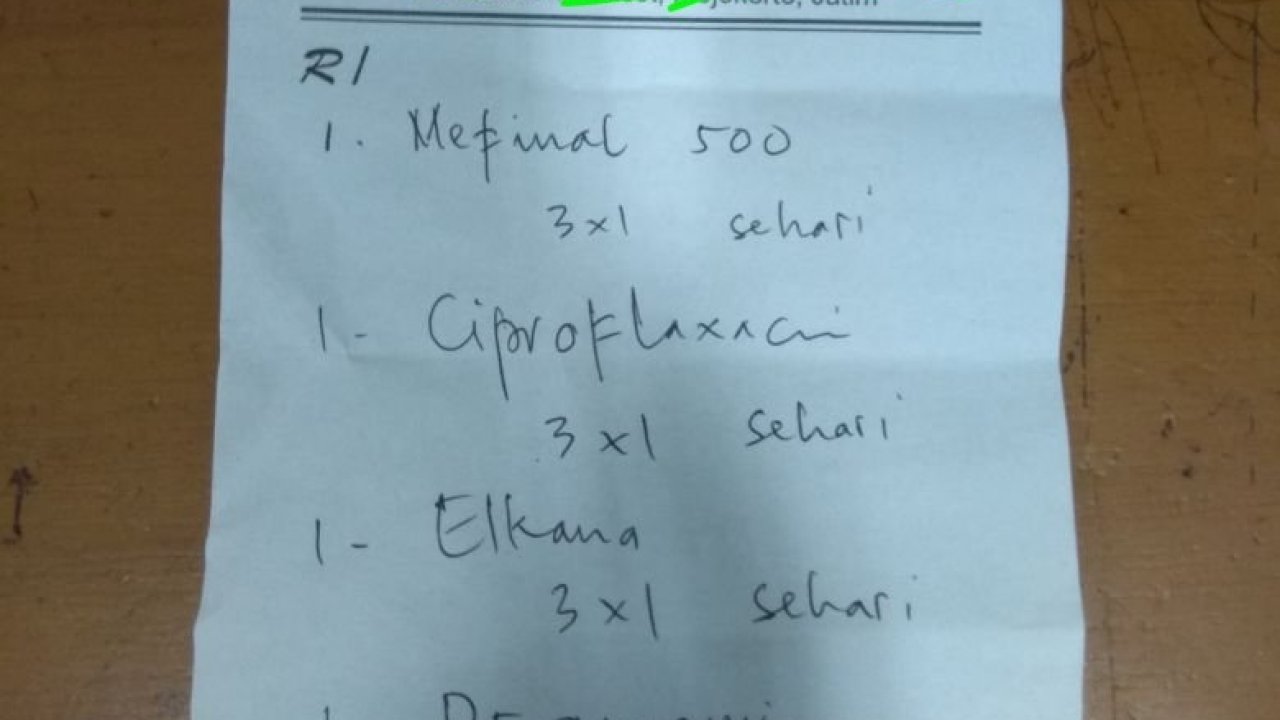 Jatim
R/
1. Mefinal 500
3 x 1 sehari
1 - Ciproflaxacin
3 x 1 sehari
1 - Elkana
3 x 1 sehari
1